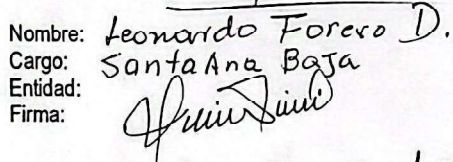 Nombre: Leonardo Forero D.
Cargo: Santa Ana Baja
Entidad:
Firma: